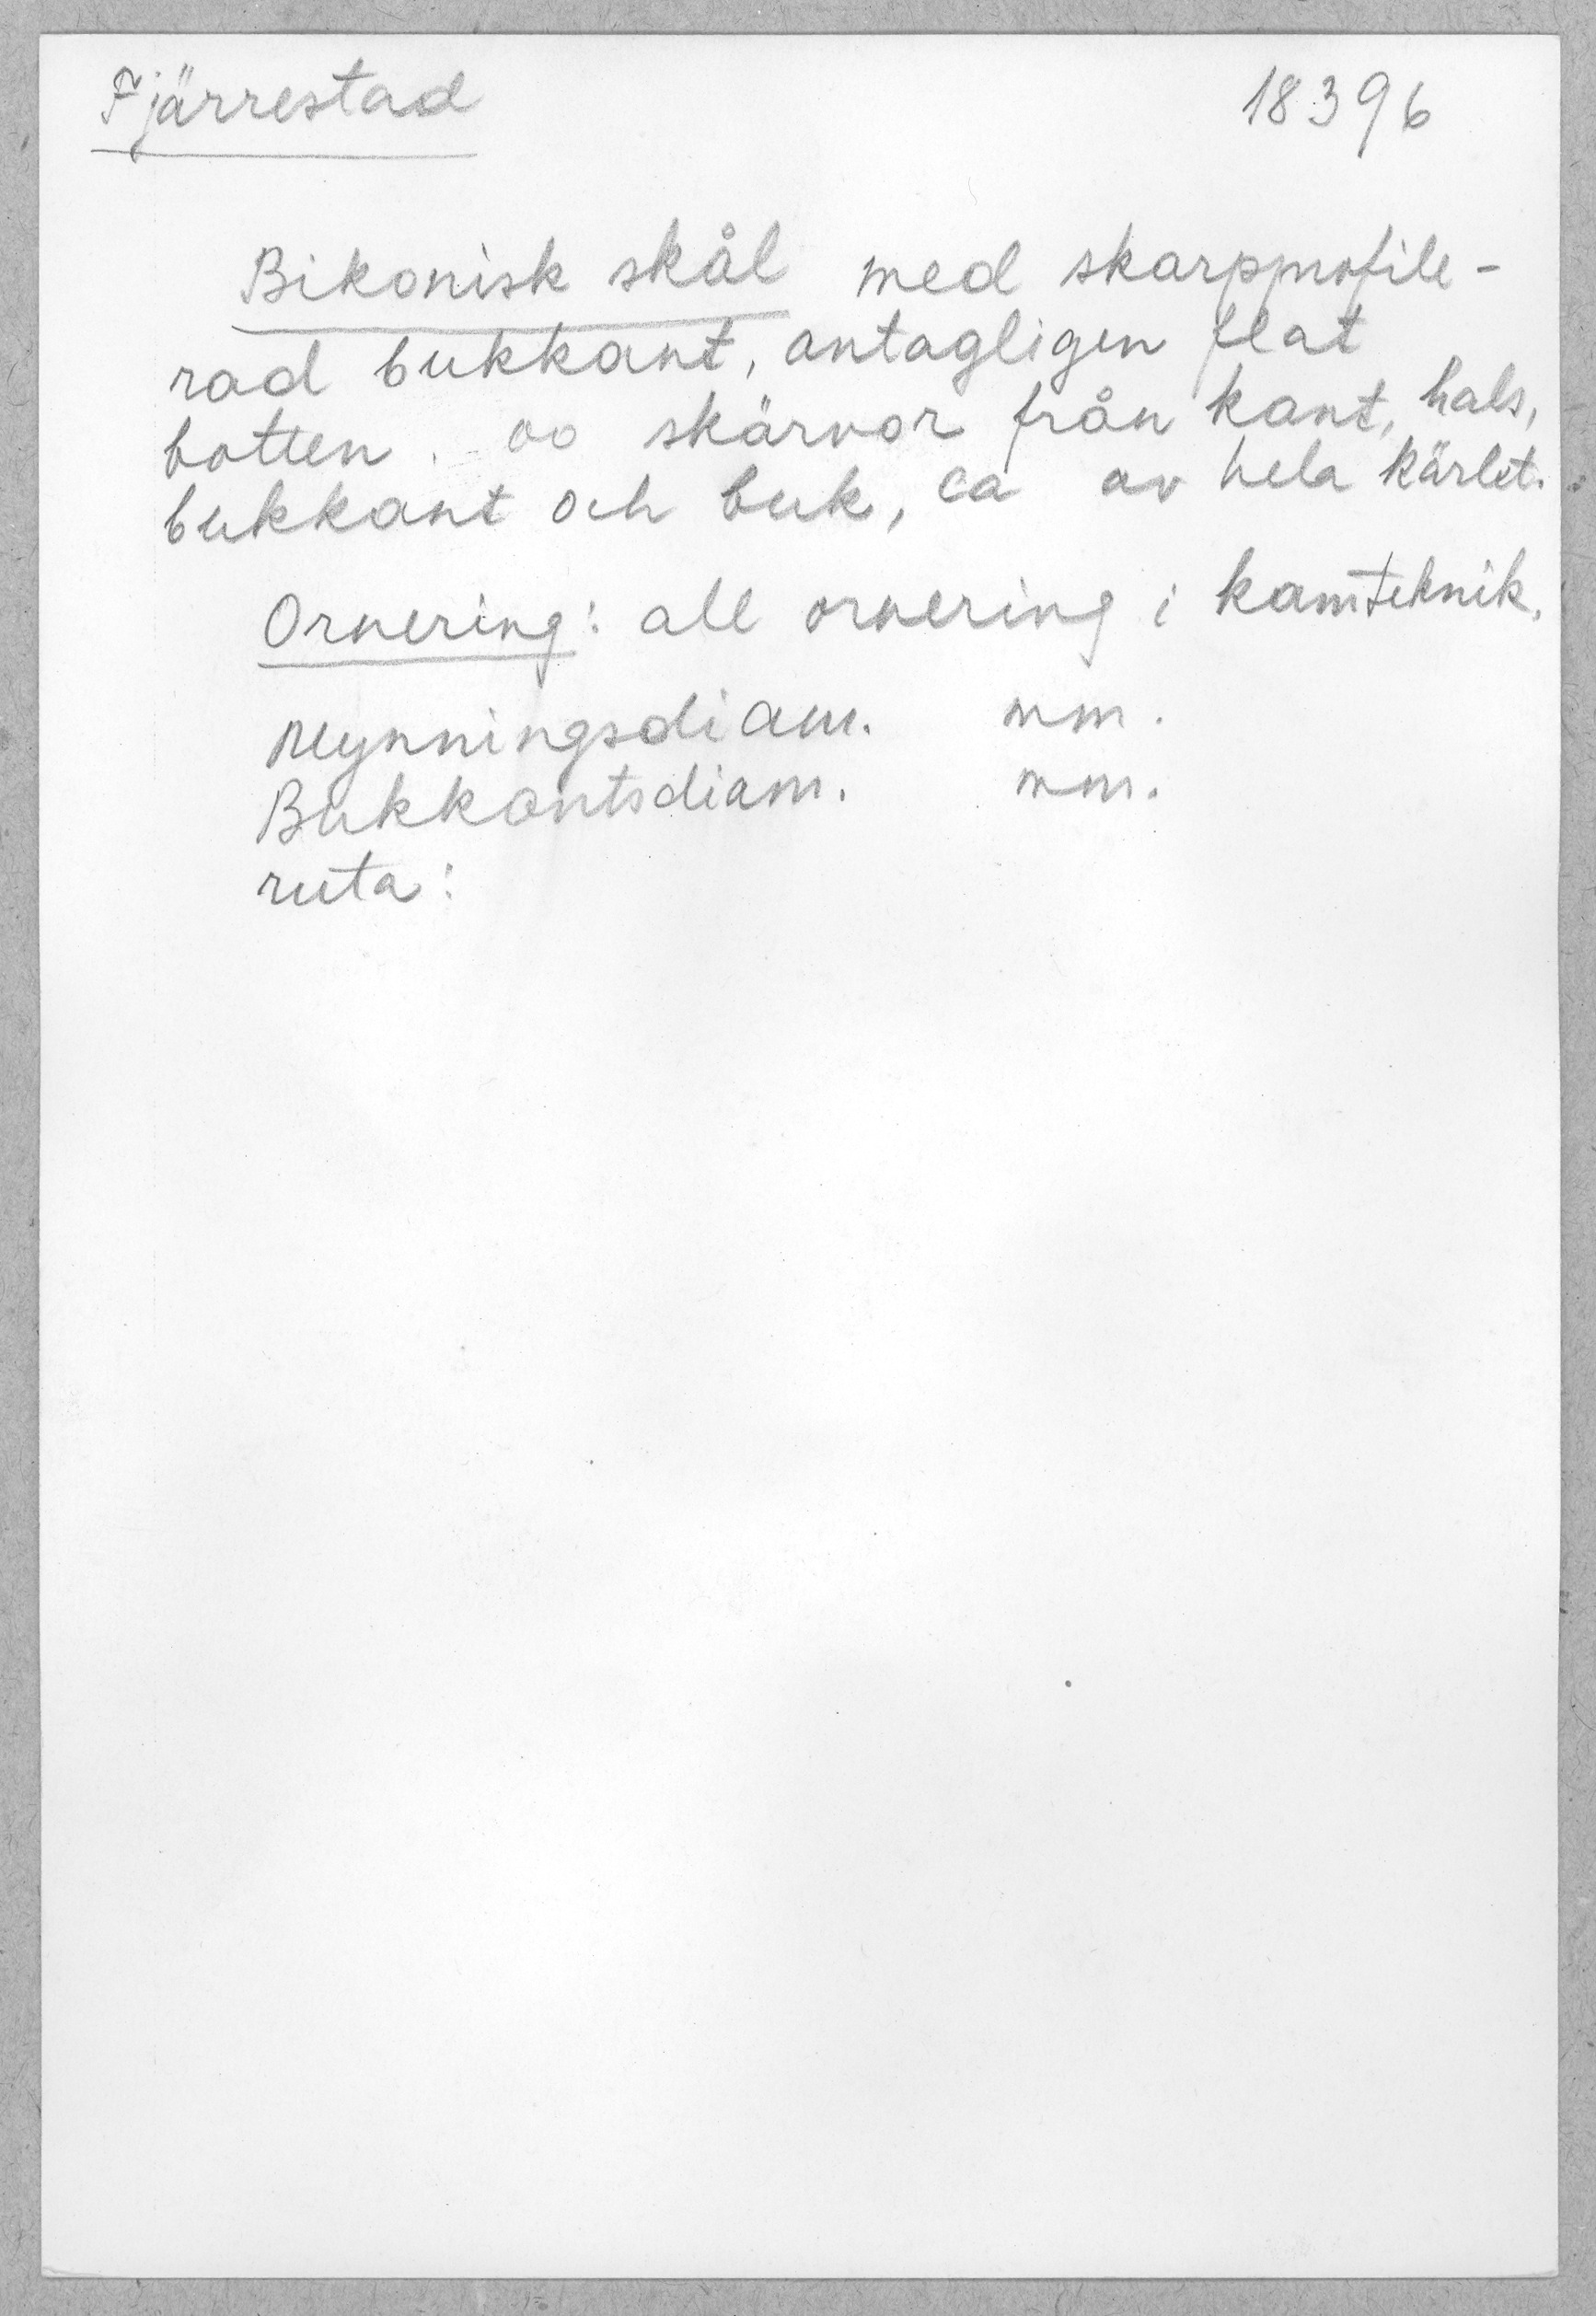 Fjärrestad 18396
Bikonisk skål med skarpprofile-
rad bukkant, antagligen flat
botten. oo skärvor från kant, hals,
bukkant och buk, ca av hela kärlet.
Ornering: all ornering i kamteknik.
Mynningsdiam. mm.
Bukkantsdiam. mm.
ruta: